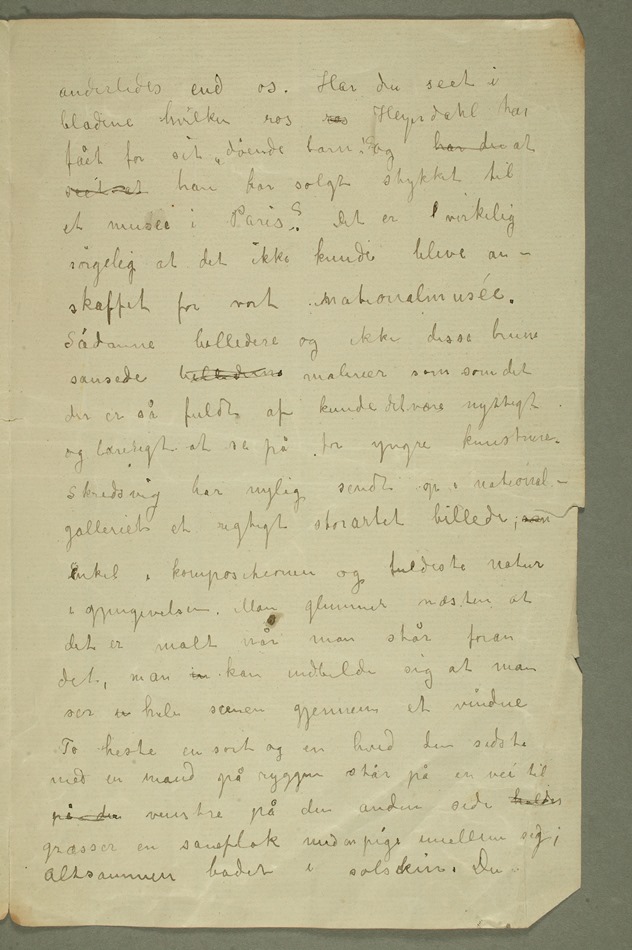 anderledes end os. Har du seet i
bladene hvilken ros ros Heyerdahl har
fået for sit „døende barn." og har du at
seet at han har solgt stykket til
et musée i Paris? Det er virkelig
sørgelig at det ikke kunde bleve an-
skaffet for vort nationalmusée.
Sådanne billedere og ikke disse brune
sausede billederne malerier som som det
der er så fuldt af kunde det være nyttigt
og lærerigt at se på for yngre kunstnere.
Skredsvig har nylig sendt op i national-
galleriet et rigtigt storartet billede; som
Enkel i komposicionen og fuldeste natur
i gjengivelsen. Man glemmer næsten at
det er malt når man står foran
det, man kan indbilde sig at man
ser hele scenen gjennem et vindue
To heste en sort og en hvid den sidste
med en mand på ryggen står på en vei til
på den venstre på den anden side holder
græsser en saueflok med en pige imellem sig;
Altsammen badet i solskin. Du